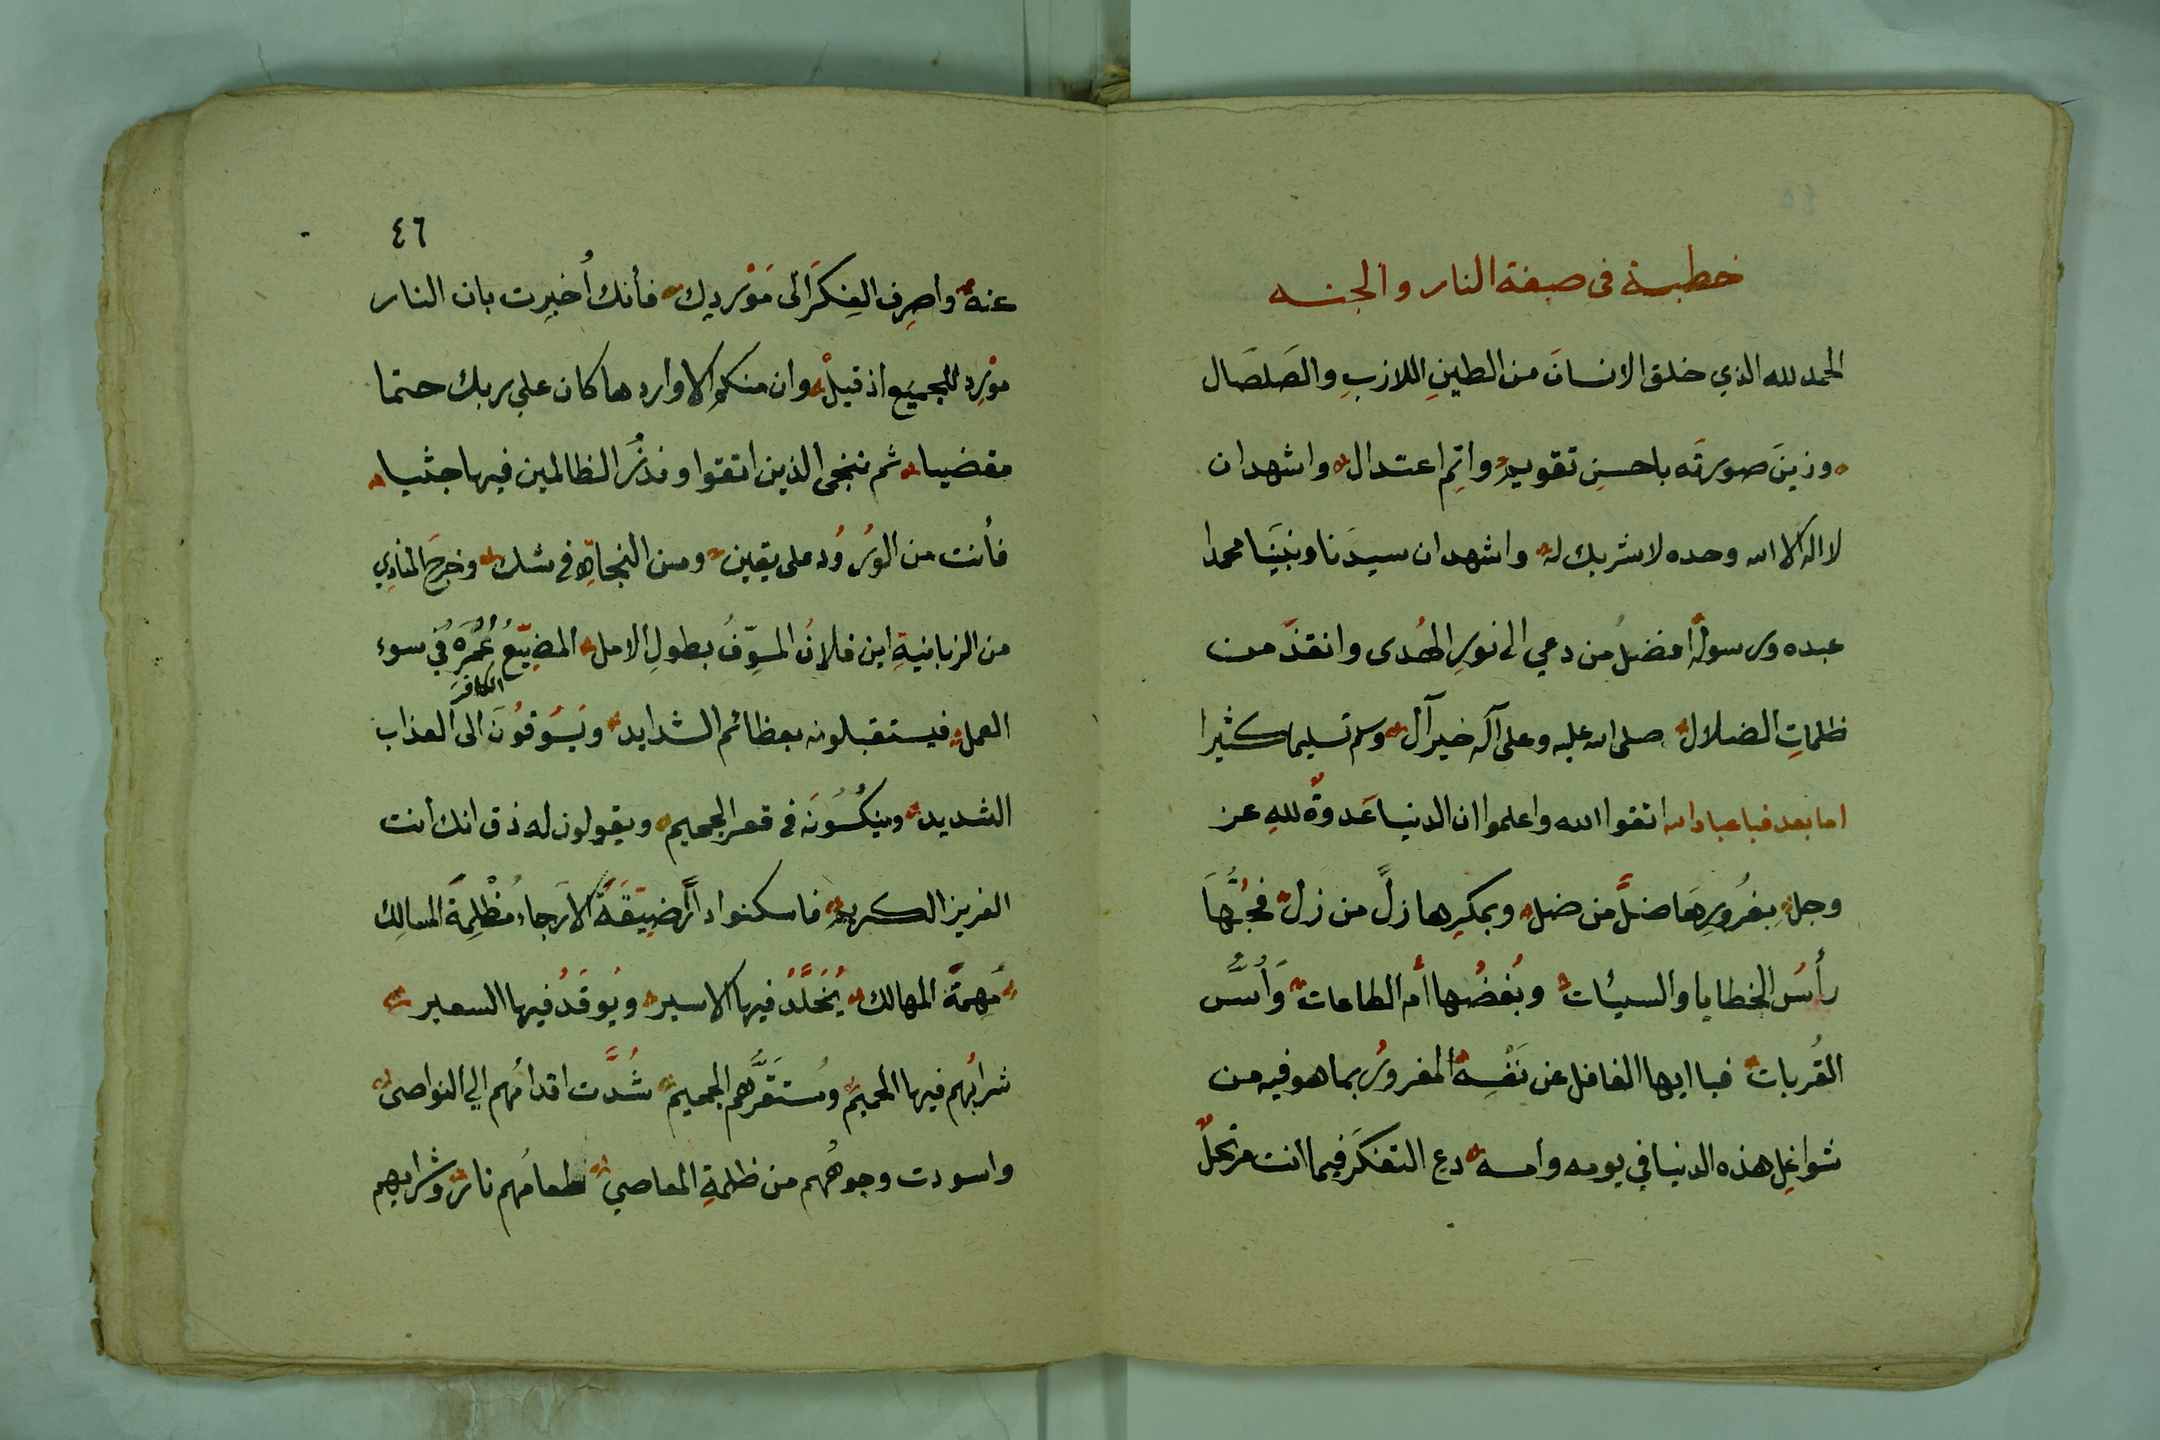 خطبة في صفة النار والجنه
الحمد لله الذي خلق الانسانَ من الطينِ اللازبِ والصَلصَال
وزينَ صورتَه باحسنِ تقويم واتِم اعتدال واشهد ان
لا اله الا الله وحده لا شريك له واشهد ان سيدَنا ونبيَنا محمدا
عبده ورسولُه افضلُ من دعي الى نورِ الهُدى وانقذَ من
ظلماتِ الضلال صلى الله عليه وعلى آله خير آل وسلم تسليما كثيرا
اما بعد فيا عباد الله اتقوا الله واعلموا ان الدنيا عَدوةٌ للهِ عز
وجل بغُرورِهَا ضلَّ من ضل وبمكرِها زلَّ من زل فحُبُّهَا
رأسُ الخطايا والسيئات وبُغضُها أم الطاعات وَأُسُّ
القُربات فيا ايها الغافل عن نَفْسِه المغرورُ بما هو فيه من
شواغِلِ هذه الدنيا في يومه وامسه دع التفكرَ فيما انت مرتحلٌ
٤٦
عنه واصرِف الفِكرَ الى مَوْرِدِك فأنك أُخبِرت بان النار
مَوْرِد للجميع اذ قيل وان منكم الا واردها كان علي ربك حتما
مقضيا ثم ننجى الذين اتقوا ونذَرُ الظالمين فيها جثيا
فأنت من الوُرُود على يقين ومن النجاةِ في شك وخرجَ المنادِي
من الزبانيةِ اين فلانُ المسوِّفُ بطولِ الامل المضيِّعُ عُمُرَه في سوء
العمل فيستقبلونه بعظائم الشدايد ويَسُوقُونَ الكافرَ الى العذاب
الشديد وينكسُونَه في قعر الجحيم ويقولون له ذق انك أنت
العزيز الكريم فاسكنوا داراً ضيّقَةَ الأرجاء مُظْلِمةَ المسالِك
مُهمةَ المهالك يُخَلَّدُ فيها الاسير ويُوقَدُ فيها السعير
شرابُهم فيها الحميمُ ومُستَقَرُّهم الجحيم شُدَّت اقدامُهم الي النواصى
واسودت وجوهُهم من ظلمةِ المعاصي طعامُهم نار وشرابهم